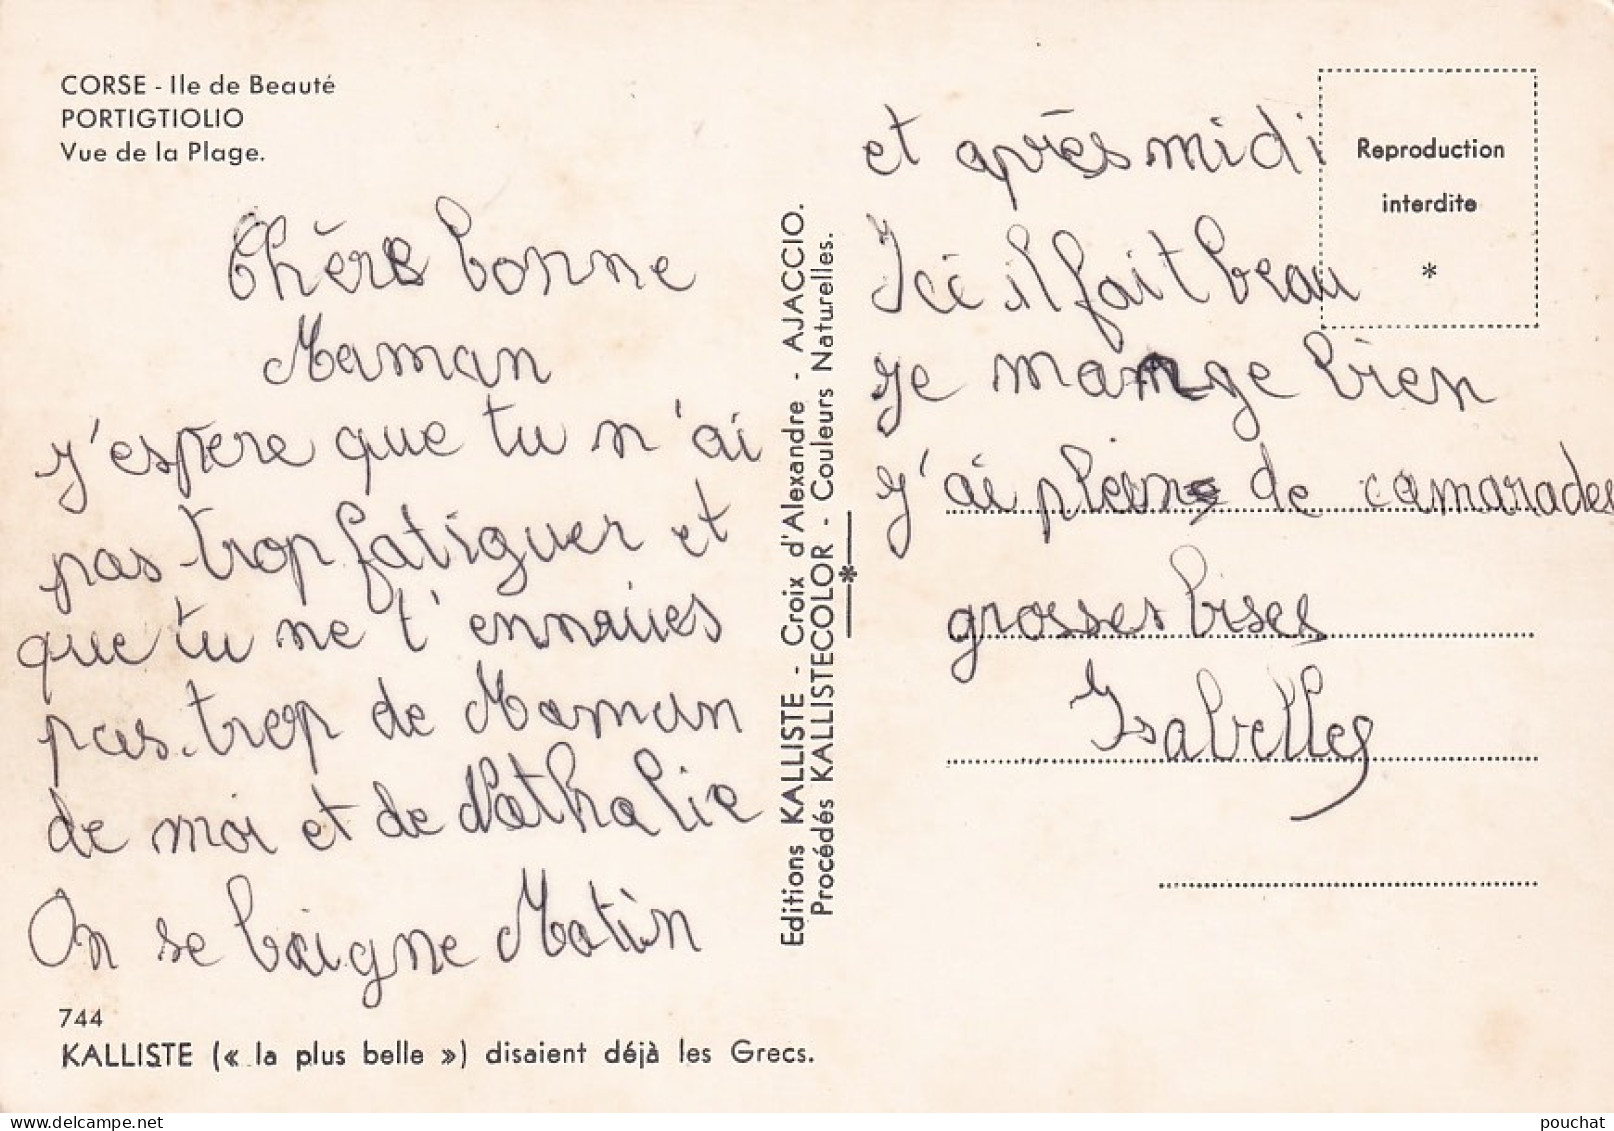 CORSE - Ile de Beauté
PORTIGTIOLIO
Vue de la Plage.
Chère bonne
Maman
j'espère que tu n'ai
pas trop fatiguer et
que tu ne t'ennuies
pas trop de Maman
de moi et de Nathalie
On se baigne Matin
744
KALLISTE (« la plus belle ») disaient déjà les Grecs.
Editions KALLISTE - Croix d'Alexandre - AJACCIO.
Procédés KALLISTECOLOR - Couleurs Naturelles.
et après midi
Ici il fait beau
je mange bien
j'ai plein de camarades
grosses bises
Isabelle
Reproduction
interdite
*
pouchat